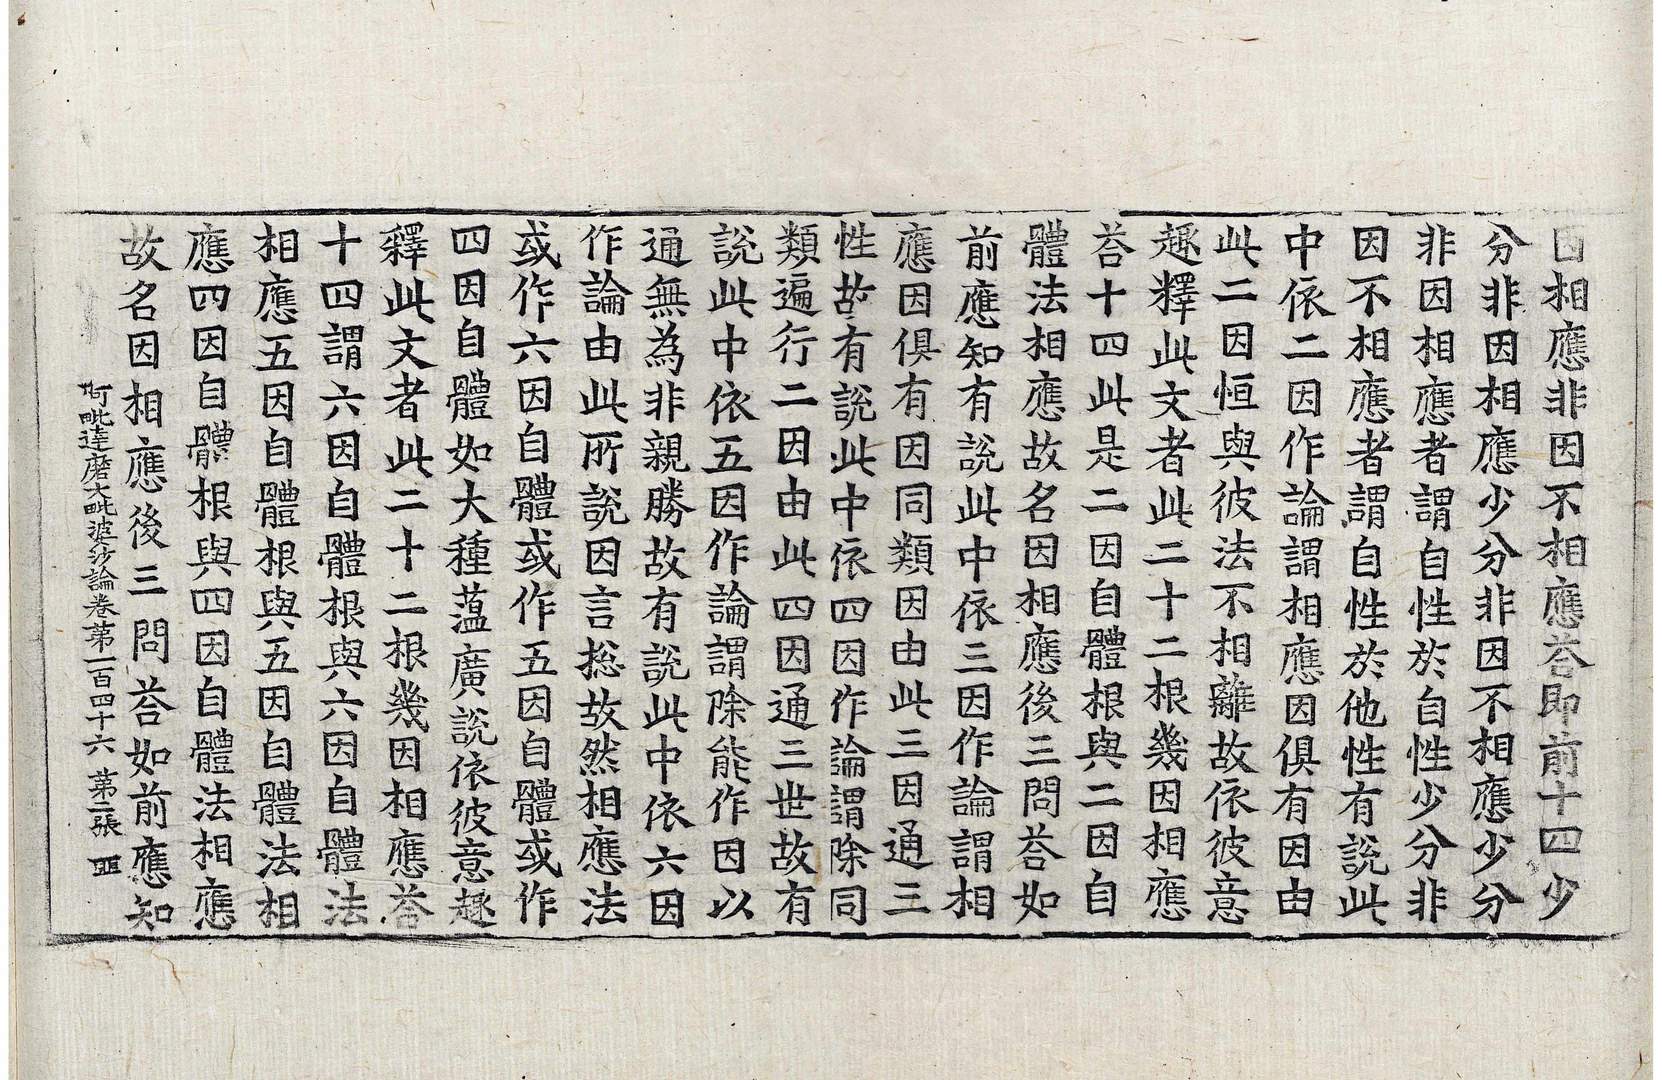 因相應非因不相應荅即前十四少
分非因相應少分非因不相應少分
非因相應者謂自性於自性少分非
因不相應者謂自性於他性有說此
中依二因作論謂相應因俱有因由
此二因恒與彼法不相離故依彼意
趣釋此文者此二十二根幾因相應
荅十四此是二因自體根與二因自
體法相應故名因相應後三問荅如
前應知有說此中依三因作論謂相
應因俱有因同類因由此三因通三
性故有說此中依四因作論謂除同
類遍行二因由此四因通三世故有
說此中依五因作論謂除能作因以
通無為非親勝故有說此中依六因
作論由此所說因言捴故然相應法
或作六因自體或作五因自體或作
四因自體如大種薀廣說依彼意趣
釋此文者此二十二根幾因相應荅
十四謂六因自體根與六因自體法
相應五因自體根與五因自體法相
應四因自體根與四因自體法相應
故名因相應後三問荅如前應知
阿毗達磨大毗婆沙論卷第一百四十六 第二張